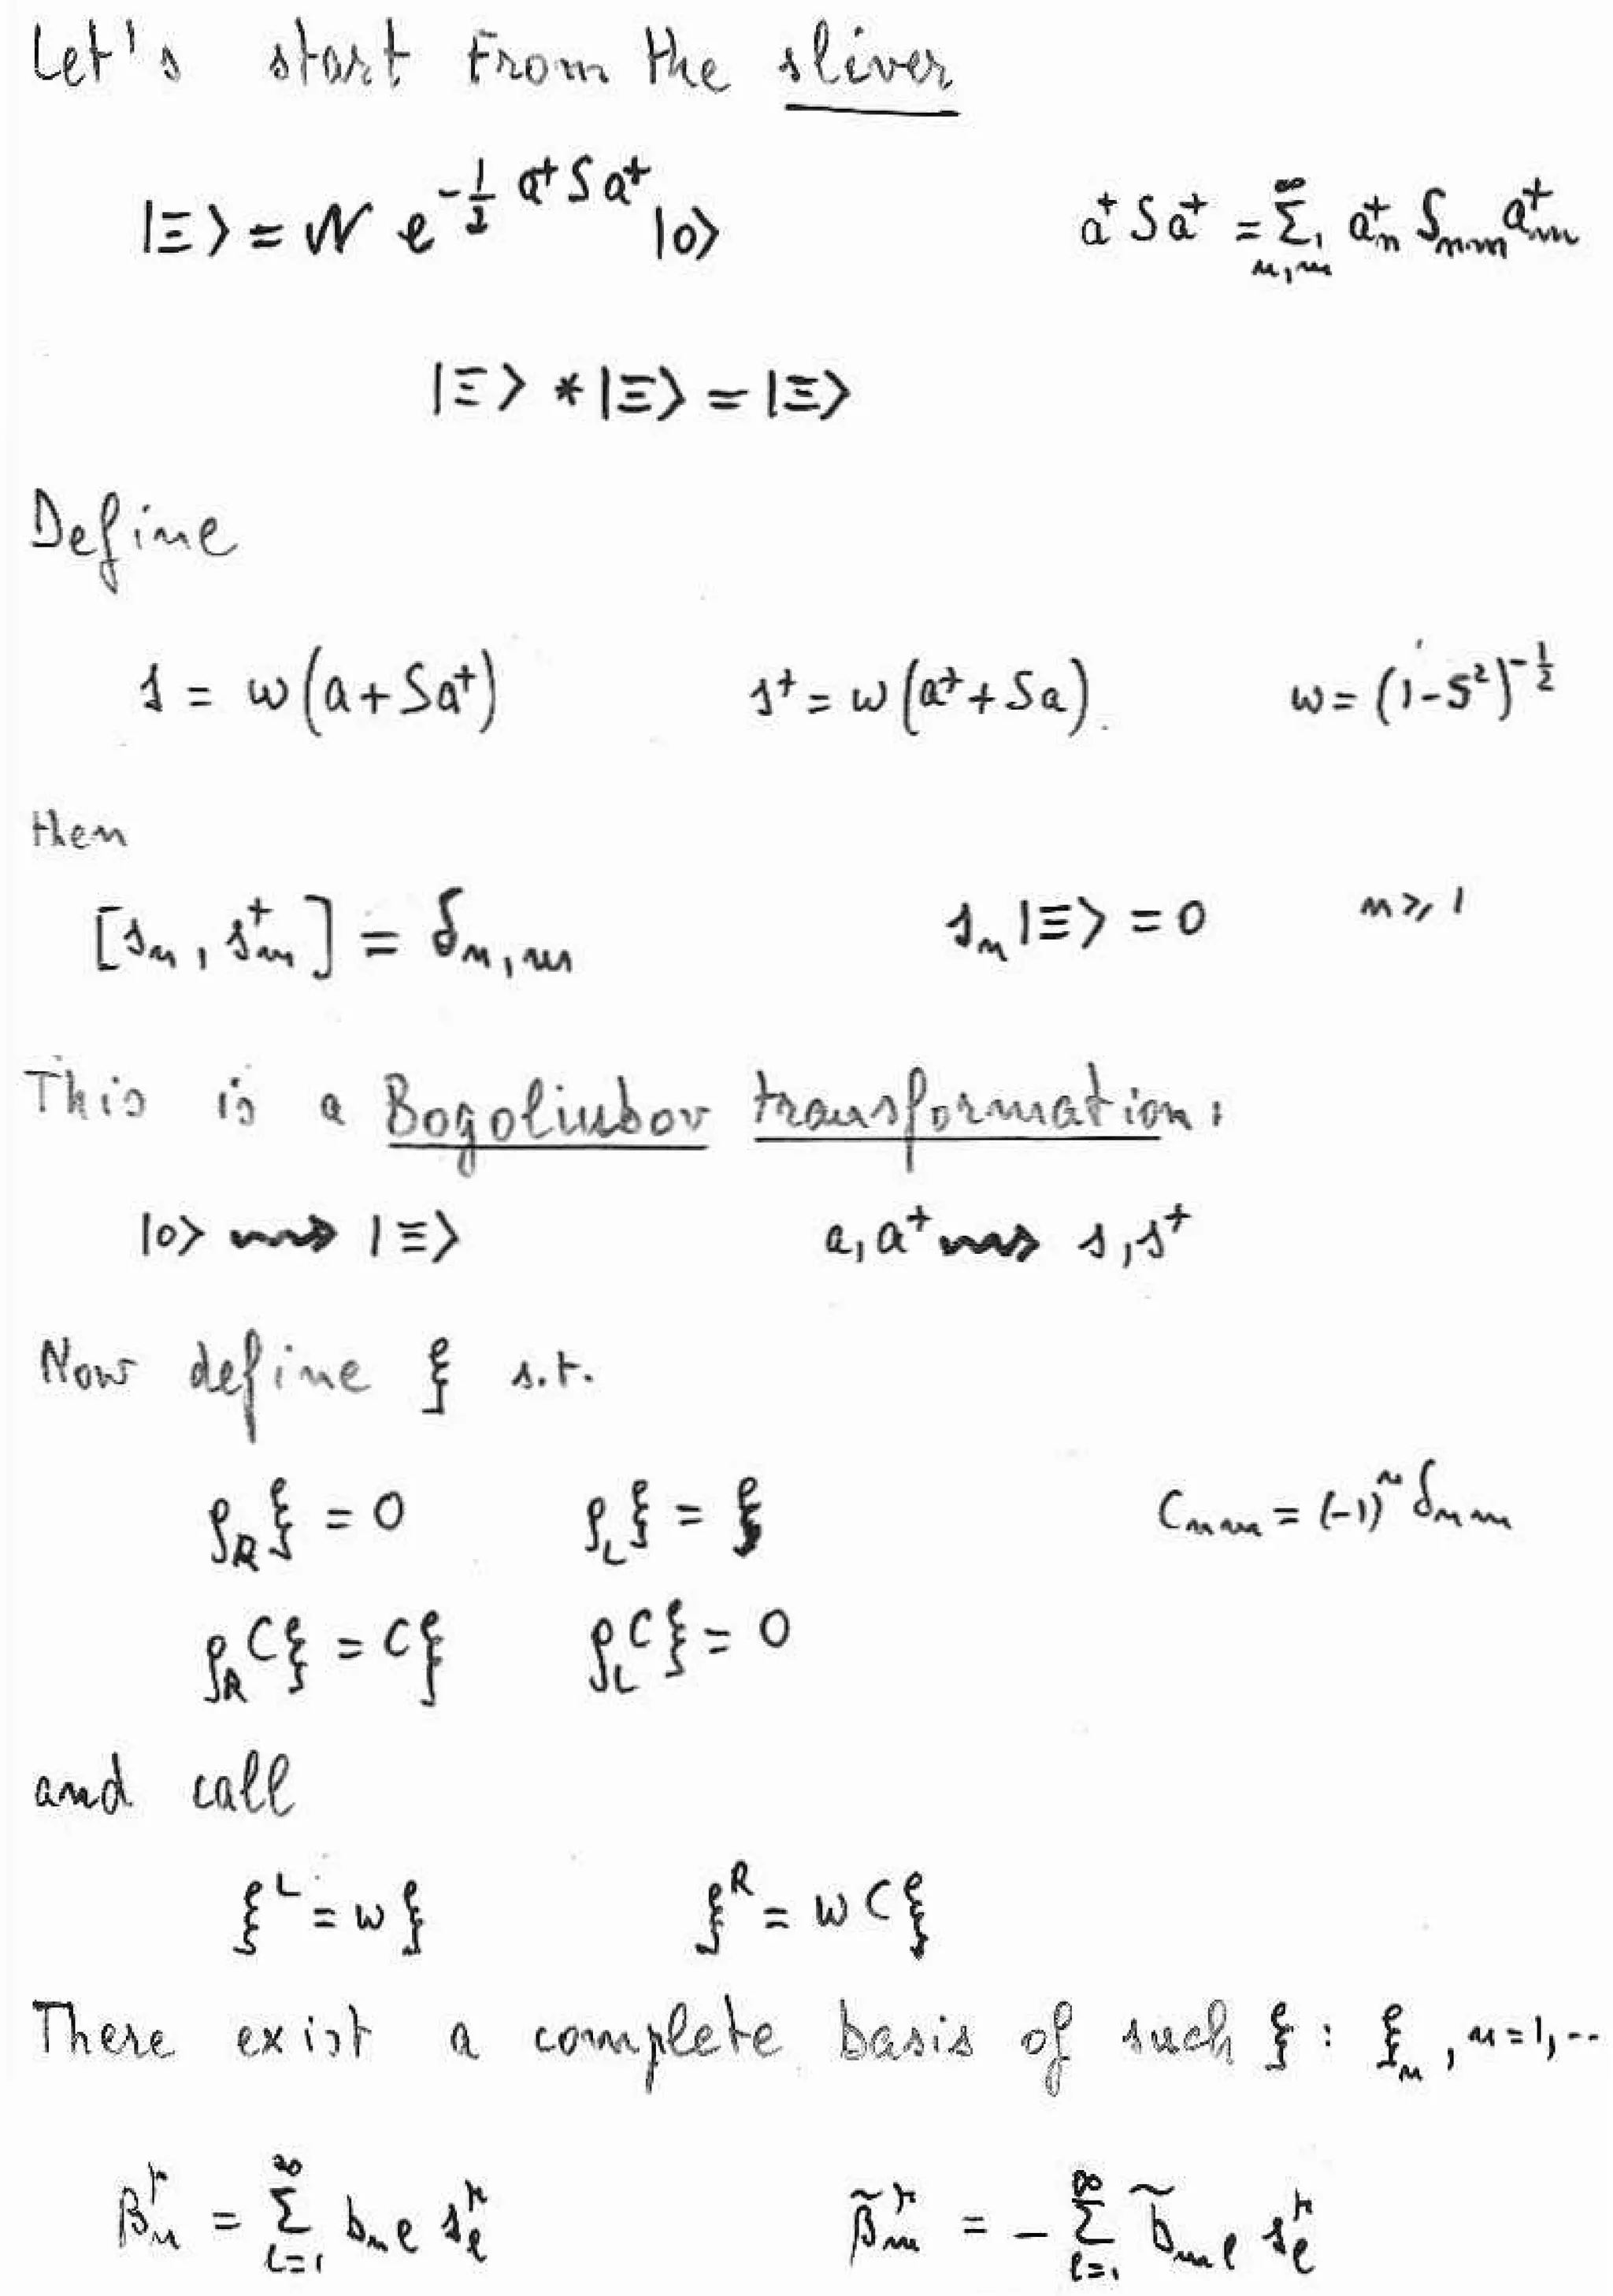 Let's start from the sliver
|Ξ⟩ = 𝒩 e^{-1/2 a† S a†} |0⟩    a† S a† = Σ_{n,m}^{∞} a†_n S_{nm} a†_m
|Ξ⟩ * |Ξ⟩ = |Ξ⟩
Define
s = w(a + Sa†)    s† = w(a† + Sa).    w = (1 - S²)^{-1/2}
then
[s_n, s†_m] = δ_{n,m}    s_n |Ξ⟩ = 0    n ⩾ 1
This is a Bogoliubov transformation:
|0⟩ ⇝ |Ξ⟩    a, a† ⇝ s, s†
Now define ξ s.t.
ρ_R ξ = 0    ρ_L ξ = ξ    C_{nm} = (-1)^n δ_{nm}
ρ_R Cξ = Cξ    ρ_L Cξ = 0
and call
ξ^L = wξ    ξ^R = wCξ
There exist a complete basis of such ξ : ξ_n, n=1,..
β_n^† = Σ_{l=1}^{∞} b_{nl} s_l^†    β̃_m^† = - Σ_{l=1}^{∞} b̃_{ml} s_l^†